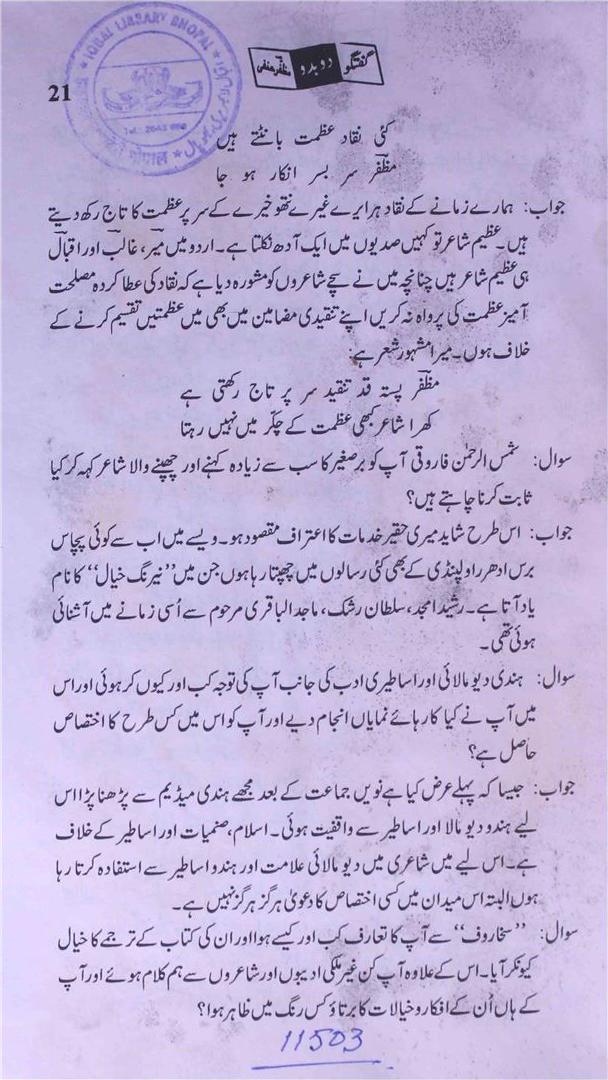 IQBAL LIBRARY BHOPAL
21
گفتگو دوبدو مظفر حنفی
کئی نقاد عظمت بانٹتے ہیں
مظفرؔ سر بسر انکار ہو جا
جواب: ہمارے زمانے کے نقاد ہر ایرے غیرے نتھو خیرے کے سر پر عظمت کا تاج رکھ دیتے
ہیں۔ عظیم شاعر تو کہیں صدیوں میں ایک آدھ نکلتا ہے۔ اردو میں میرؔ، غالبؔ اور اقبالؔ
ہی عظیم شاعر ہیں چنانچہ میں نے سچے شاعروں کو مشورہ دیا ہے کہ نقاد کی عطا کردہ مصلحت
آمیز عظمت کی پرواہ نہ کریں اپنے تنقیدی مضامین میں بھی میں عظمتیں تقسیم کرنے کے
خلاف ہوں۔ میرا مشہور شعر ہے:
مظفرؔ پستہ قد تنقید سر پر تاج رکھتی ہے
کھرا شاعر کبھی عظمت کے چکّر میں نہیں رہتا
سوال: شمس الرحمٰن فاروقی آپ کو برصغیر کا سب سے زیادہ کہنے اور چھپنے والا شاعر کہہ کر کیا
ثابت کرنا چاہتے ہیں؟
جواب: اس طرح شاید میری حقیر خدمات کا اعتراف مقصود ہو۔ ویسے میں اب سے کوئی پچاس
برس ادھر راولپنڈی کے بھی کئی رسالوں میں چھپتا رہا ہوں جن میں ”نیرنگ خیال“ کا نام
یاد آتا ہے۔ رشید امجد، سلطان رشک، ماجد الباقری مرحوم سے اُسی زمانے میں آشنائی
ہوئی تھی۔
سوال: ہندی دیومالائی اور اساطیری ادب کی جانب آپ کی توجہ کب اور کیوں کر ہوئی اور اس
میں آپ نے کیا کارہائے نمایاں انجام دیے اور آپ کو اس میں کس طرح کا اختصاص
حاصل ہے؟
جواب: جیسا کہ پہلے عرض کیا ہے نویں جماعت کے بعد مجھے ہندی میڈیم سے پڑھنا پڑا اس
لیے ہندو دیومالا اور اساطیر سے واقفیت ہوئی۔ اسلام، صنمیات اور اساطیر کے خلاف
ہے۔ اس لیے میں شاعری میں دیومالائی علامت اور ہندو اساطیر سے استفادہ کرتا رہا
ہوں البتہ اس میدان میں کسی اختصاص کا دعویٰ ہرگز ہرگز نہیں ہے۔
سوال: ”سخاروف“ سے آپ کا تعارف کب اور کیسے ہوا اور ان کی کتاب کے ترجمے کا خیال
کیونکر آیا۔ اس کے علاوہ آپ کن غیر ملکی ادیبوں اور شاعروں سے ہم کلام ہوئے اور آپ
کے ہاں اُن کے افکار و خیالات کا برتاؤ کس رنگ میں ظاہر ہوا؟
11503